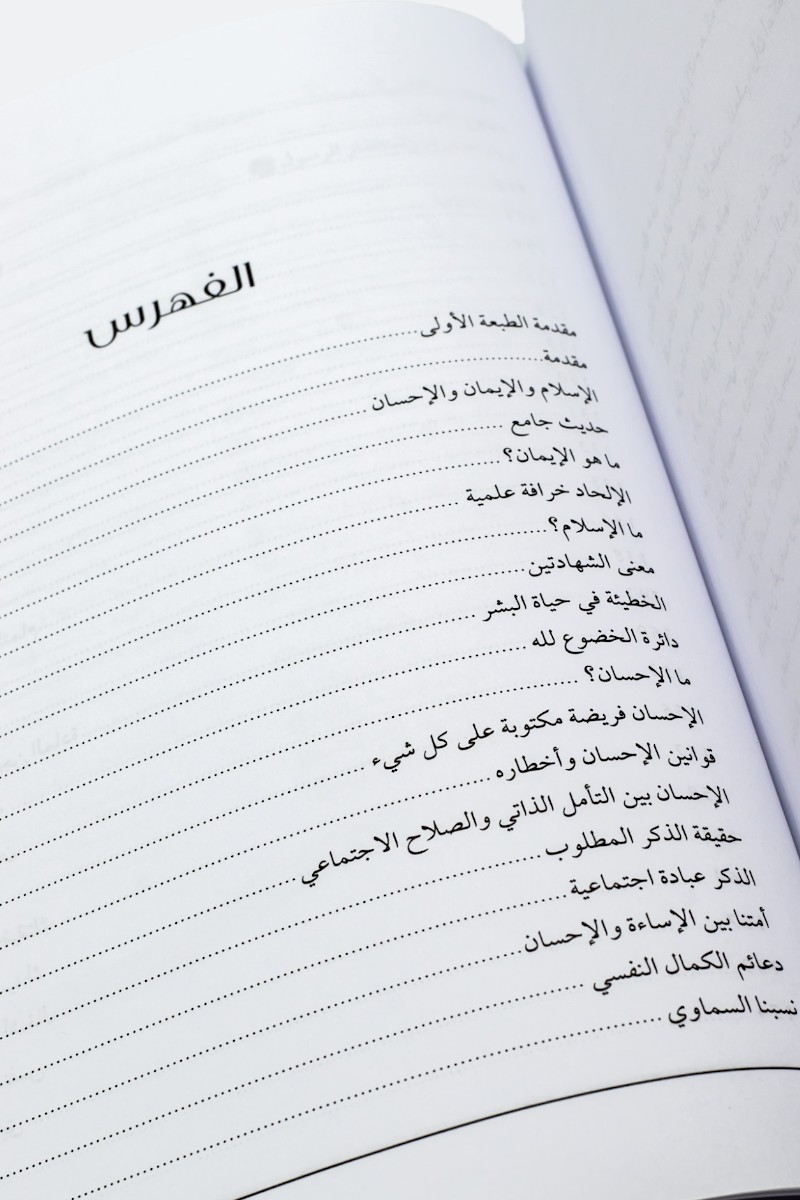 الفهرس
مقدمة الطبعة الأولى
مقدمة
الإسلام والإيمان والإحسان
حديث جامع
ما هو الإيمان؟
الإلحاد خرافة علمية
ما الإسلام؟
معنى الشهادتين
الخطيئة في حياة البشر
دائرة الخضوع لله
ما الإحسان؟
الإحسان فريضة مكتوبة على كل شيء
قوانين الإحسان وأخطاره
الإحسان بين التأمل الذاتي والصلاح الاجتماعي
حقيقة الذكر المطلوب
الذكر عبادة اجتماعية
أمتنا بين الإساءة والإحسان
دعائم الكمال النفسي
نسبنا السماوي